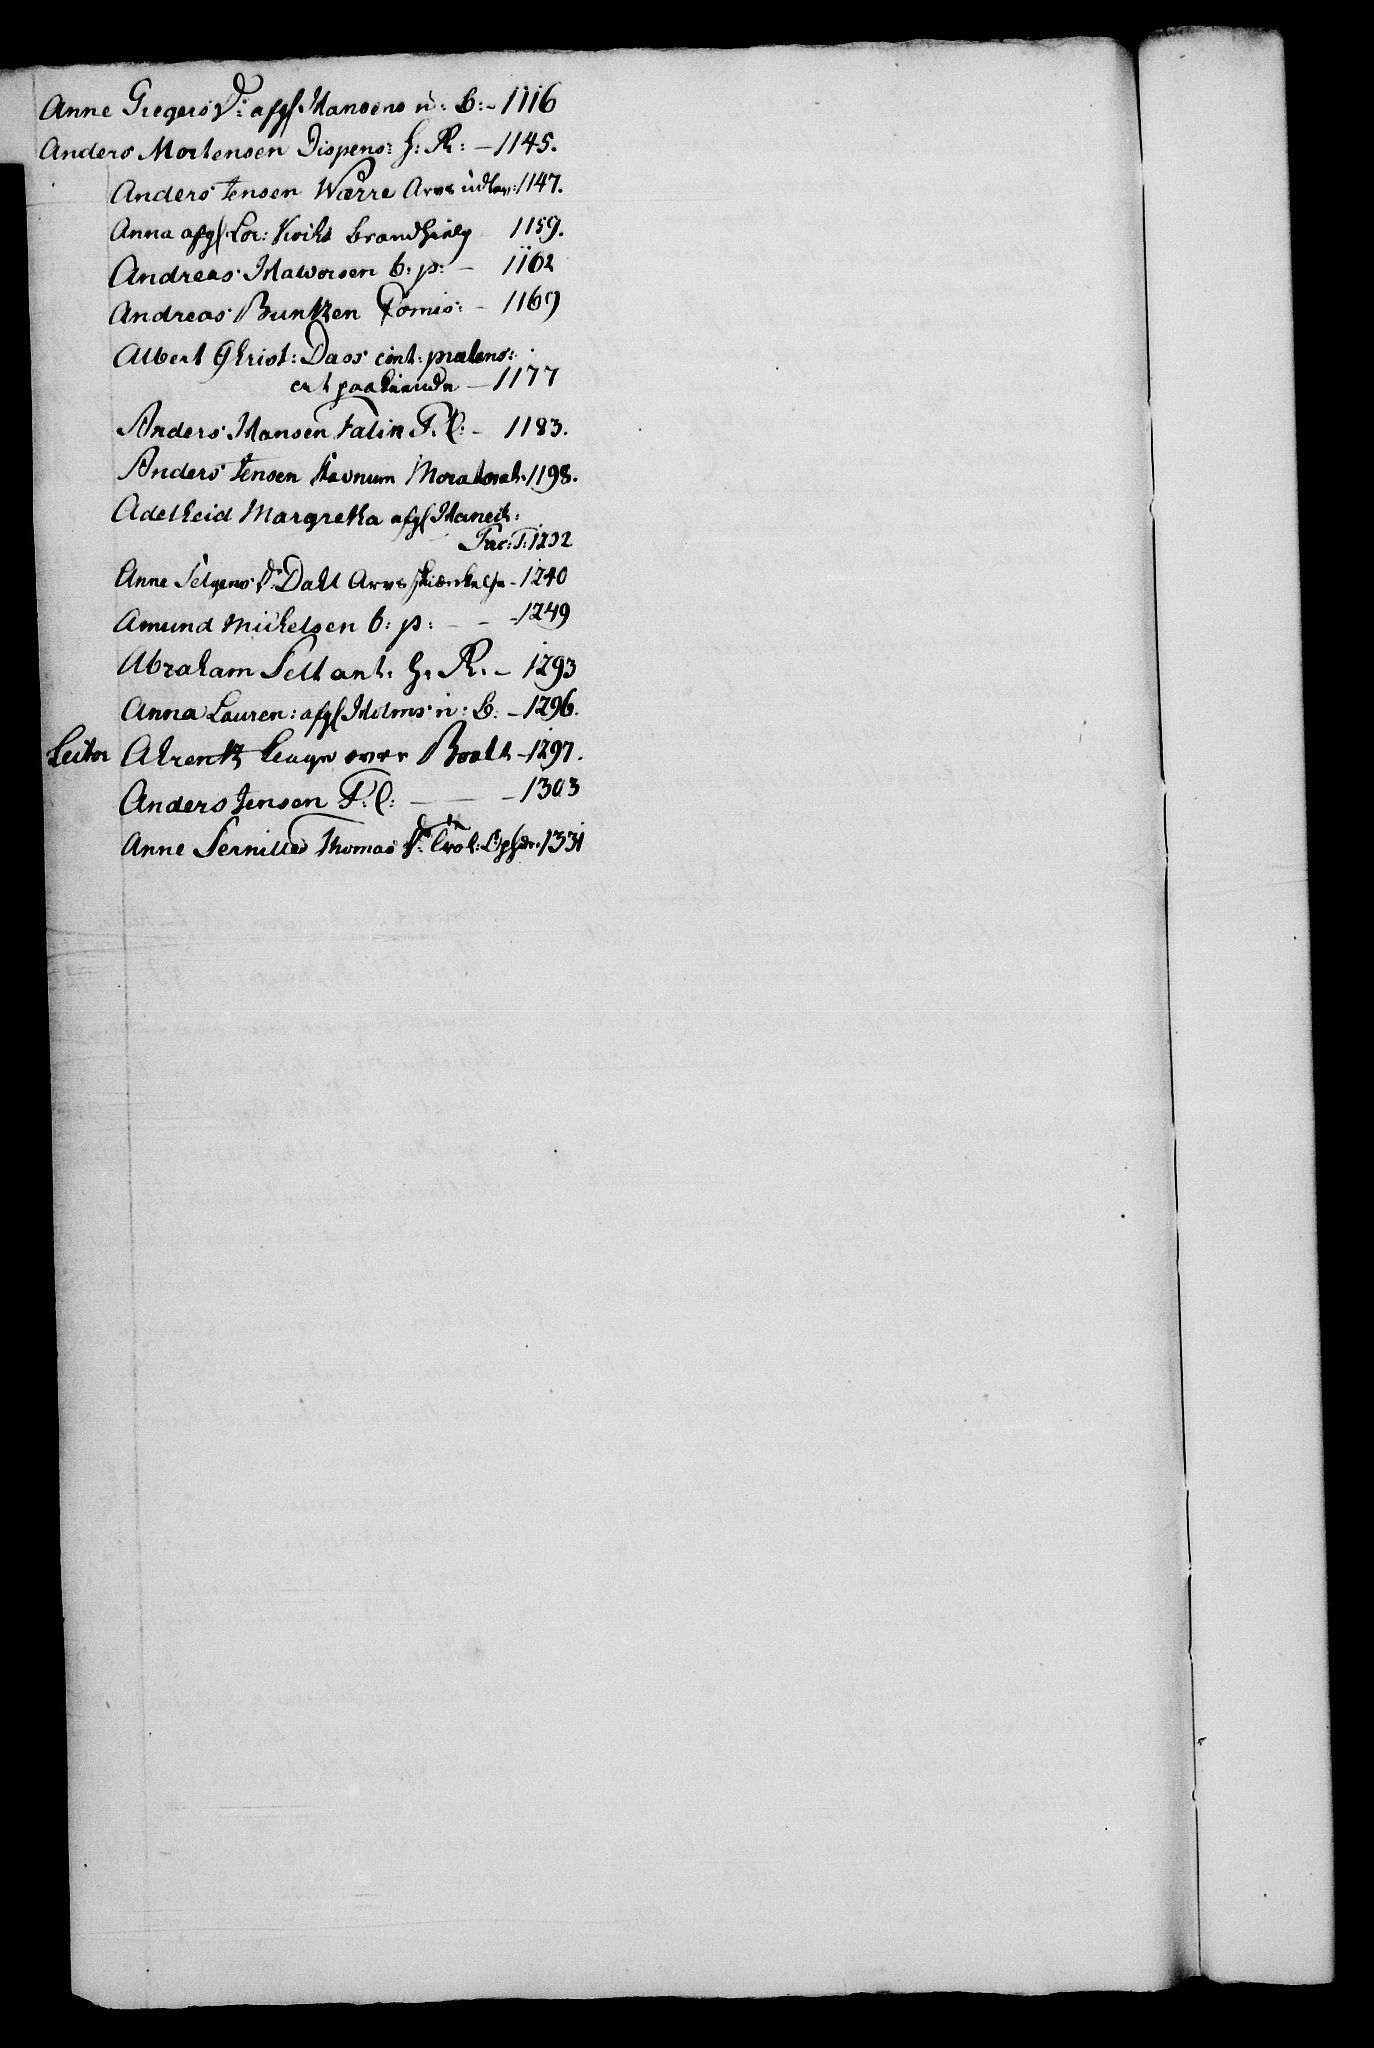 Anne Gregers D: afg: Hansens n: B: - 1116
Anders Mortensen Dispens: h: R: - 1145.
Anders Jensen Wærre Arvs udlæg: 1147.
Anna afg: Lor: 1159.
Andreas Halvorsen b: p: - 1162
Andreas Buntzen Comis: - 1169
Albert Christ: Dass cont: prætens:
ert paakiende - 1177
Anders Hansen Falin F. C: - 1183.
Anders Jensen Stavnum Moratorat: 1198.
Adelheid Margretha afg: Haneck:
Fac: T: 1232
Anne D: Dahl Arvs - 1240
Amund Mickelsen b: p: - - - 1249
Abraham ant: h: R: - 1293
Anna Lauren: afg: Holms n: B: - 1296.
Ahrentz klage over Boalt - 1297.
Anders Jensen F: C: - - - 1303
Anne Pernilles Thomas D: 1331